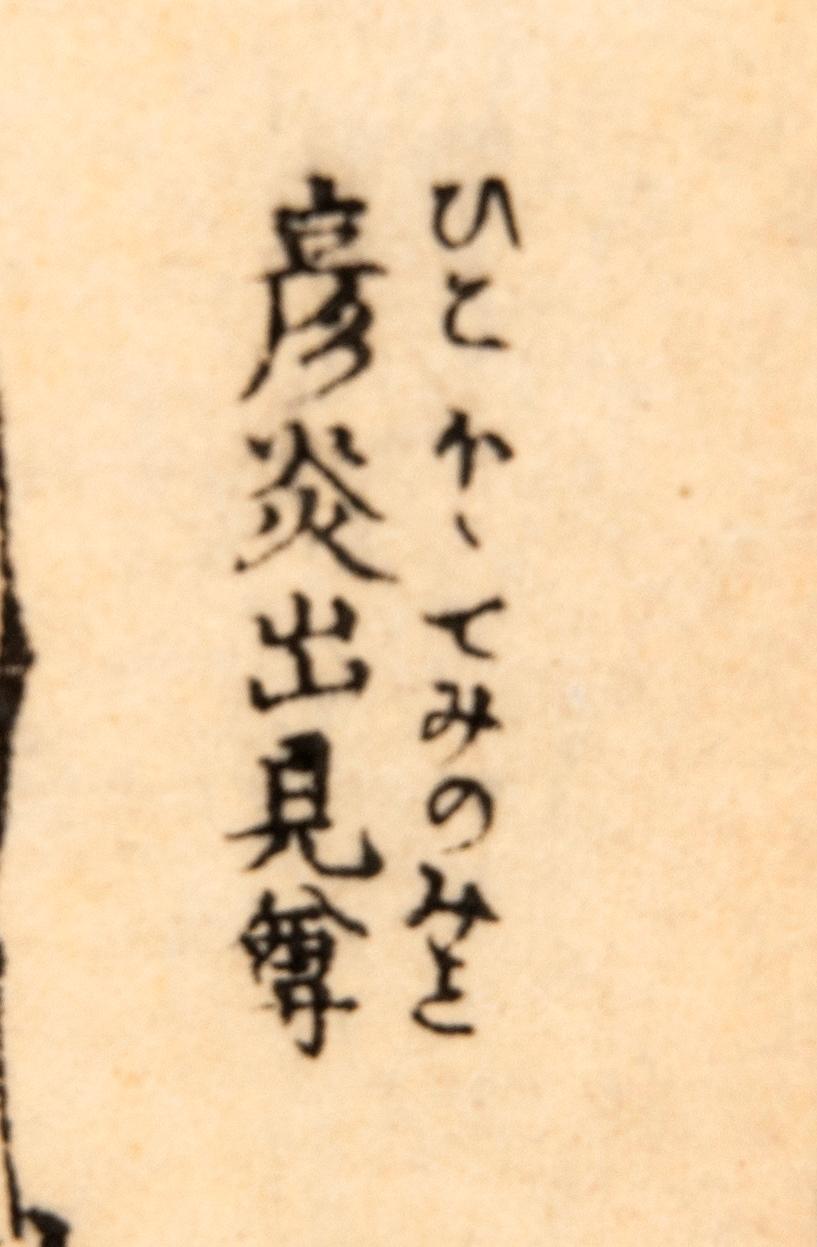 ひこほゝてみのみこと
彦炎出見尊